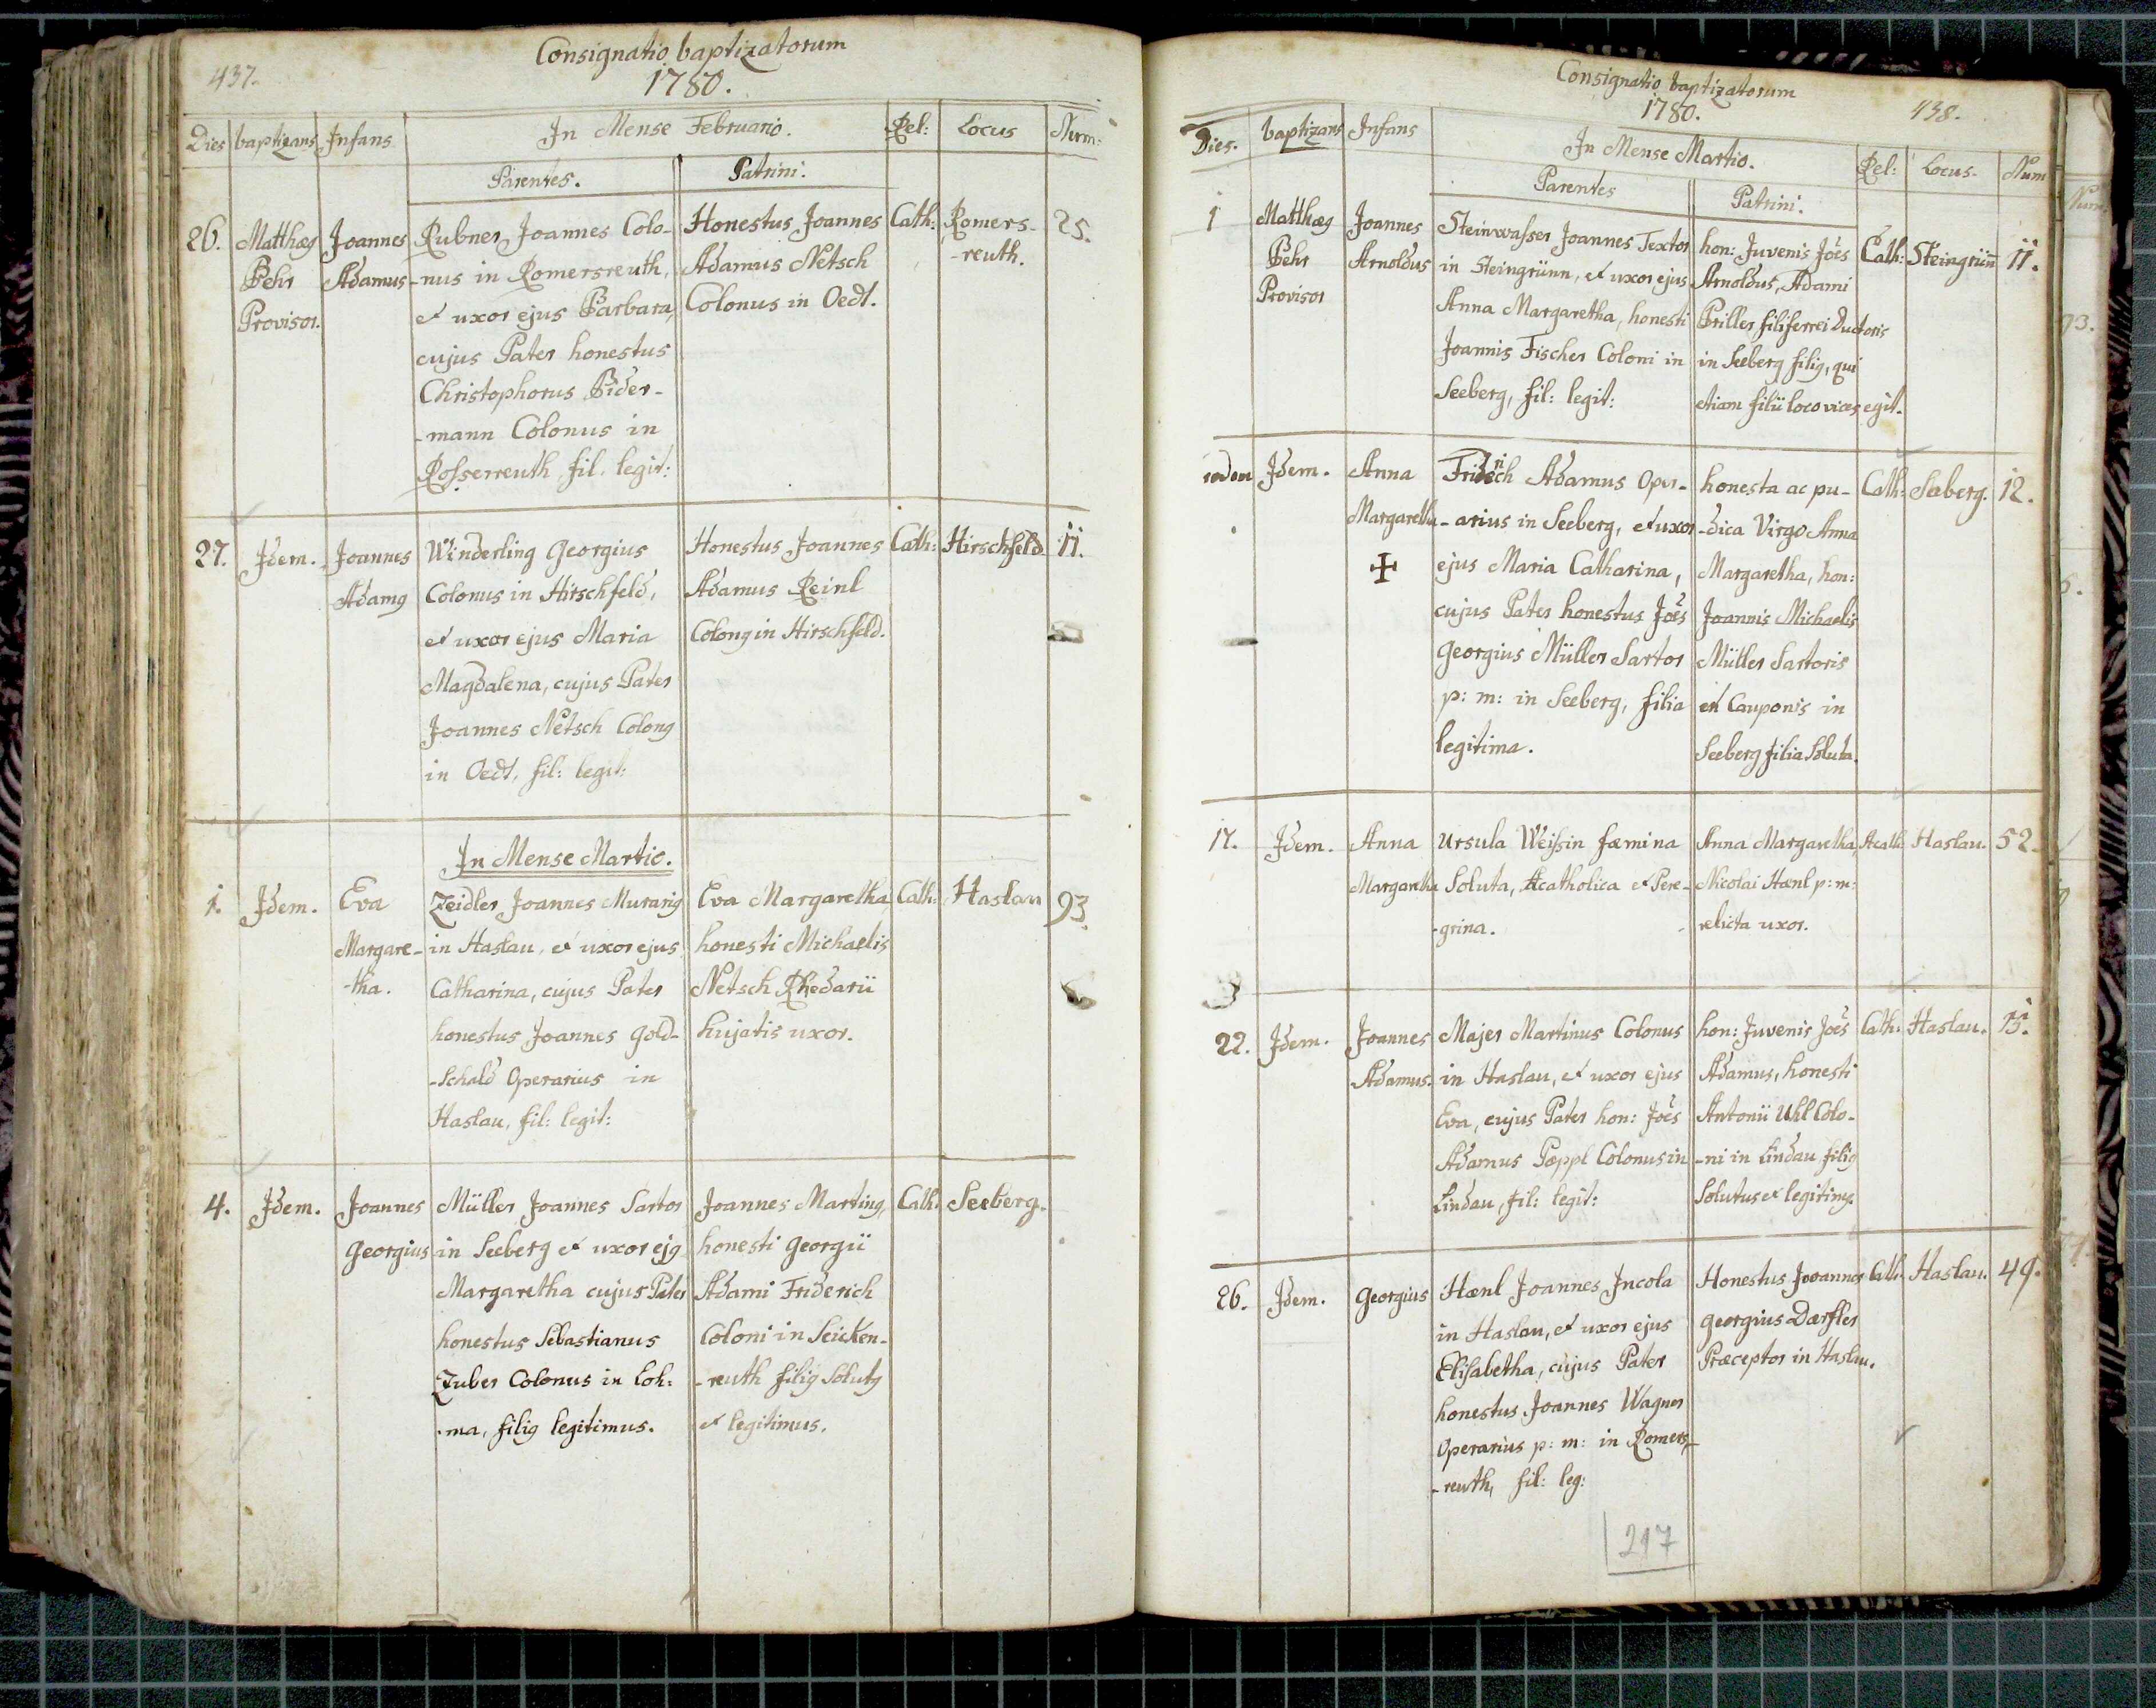 437.
Consignatio baptizatorum
1780.
Dies baptizans Infans In Mense Februario. Rel: Locus Num:
Parentes. Patrini.
26. Matthæ9 Behr Provisor.
Joannes Adamus
Rubner Joannes Colo-
-nus in Romersreuth,
et uxor ejus Barbara,
cujus Pater honestus
Christophorus Bider-
-mann Colonus in
Rosserreuth fil. legit:
Honestus Joannes
Adamus Netsch
Colonus in Oedt.
Cath: Romers-
-reuth. 25.
27. Idem. Joannes
Adam9
Winderling Georgius
Colonus in Hirschfeld,
et uxor ejus Maria
Magdalena, cujus Pater
Joannes Netsch Colon9
in Oedt, fil: legit:
Honestus Joannes
Adamus Reinl
Colon9 in Hirschfeld.
Cath: Hirschfeld 11.
In Mense Martio.
1. Idem. Eva
Margare-
-tha.
Zeidler Joannes Murari9
in Haslau, et uxor ejus
Catharina, cujus Pater
honestus Joannes Gold-
-schald Operarius in
Haslau, fil: legit:
Eva Margaretha
honesti Michaelis
Netsch Rhedarii
hujatis uxor.
Cath: Haslau 93.
4. Idem. Joannes
Georgius
Müller Joannes Sartor
in Seeberg et uxor ej9
Margaretha cujus Pater
honestus Sebastianus
Zuber Colonus in Loh:
-ma, fili9 legitimus.
Joannes Martin9,
honesti Georgii
Adami Friderich
Coloni in Seicken-
-reuth fili9 Solut9
et legitimus.
Cath: Seeberg.
Consignatio baptizatorum
1780.
438.
Dies. baptizans Infans In Mense Martio. Rel: Locus. Num
Parentes Patrini.
1 Matthæ9
Behr
Provisor
Joannes
Arnoldus
Steinwasser Joannes Textor
in Steingrünn, et uxor ejus
Anna Margaretha, honesti
Joannis Fischer Coloni in
Seeberg, fil: legit:
hon: Juvenis Joes
Arnoldus, Adami
Briller filiferrei ductoris
in Seeberg fili9, qui
etiam filii loco vices egit.
Cath: Steingrün 11.
eodem Idem. Anna
Margaretha
Fridrich Adamus Oper-
-arius in Seeberg, et uxor
ejus Maria Catharina,
cujus Pater honestus Joes
Georgius Müller Sartor
p: m: in Seeberg, filia
legitima.
honesta ac pu-
-dica Virgo Anna
Margaretha, hon:
Joannis Michaelis
Müller Sartoris
et Cauponis in
Seeberg filia Soluta.
Cath: Seeberg. 12.
17. Idem. Anna
Margaretha
Ursula Weissin fæmina
Soluta, Acatholica et Pere-
-grina.
Anna Margaretha,
Nicolai Hænl p: m:
relicta uxor.
Acath: Haslau. 52.
22. Idem. Joannes
Adamus.
Majer Martinus Colonus
in Haslau, et uxor ejus
Eva, cujus Pater hon: Joes
Adamus Pæppl Colonus in
Lindau, fil: legit:
hon: Juvenis Joes
Adamus, honesti
Antonii Uhl Colo-
-ni in Lindau fili9
Solutus et legitim9.
Cath: Haslau. 15.
26. Idem. Georgius
Hænl Joannes Incola
in Haslau, et uxor ejus
Elisabetha, cujus Pater
honestus Joannes Wagner
Operarius p: m: in Romers-
-reuth, fil: leg:
Honestus Joannes
Georgius Dærfler
Præceptor in Haslau.
Cath: Haslau. 49.
217
Num.
93.